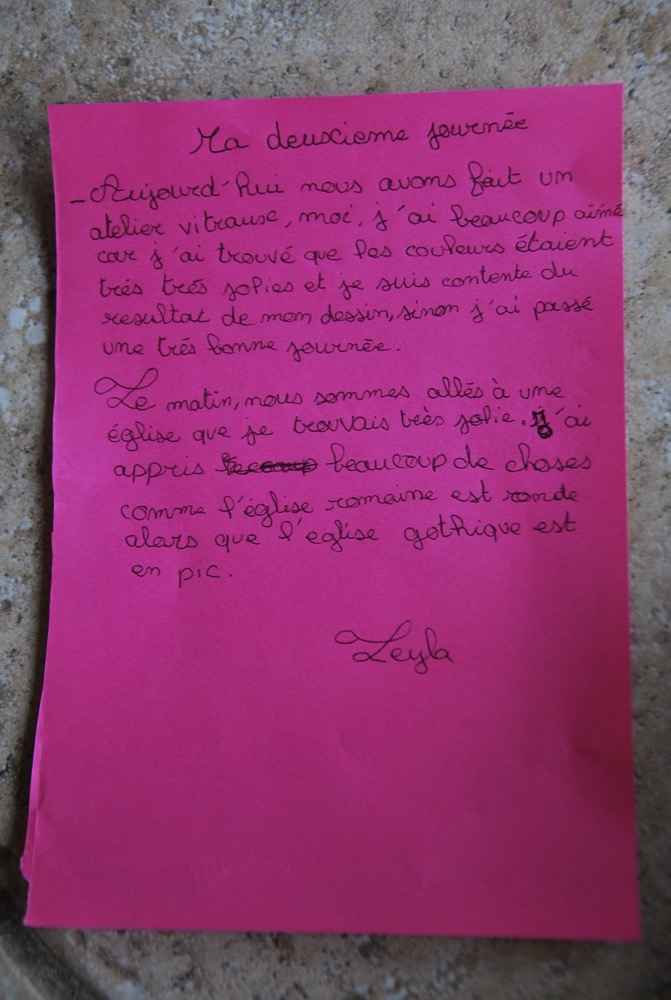 Ma deuxcieme journée
- Aujourd'hui nous avons fait un
atelier vitrause, moi, j'ai beaucoup aimé
car j'ai trouvé que les couleurs étaient
trés trés jolies et je suis contente du
resultat de mon dessin, sinon j'ai passé
une trés bonne journée.
Le matin, nous sommes allés à une
église que je trouvais très jolie. j'ai
appris beaucoup de choses
comme l'église romaine est ronde
alors que l'eglise gothique est
en pic.
Leyla